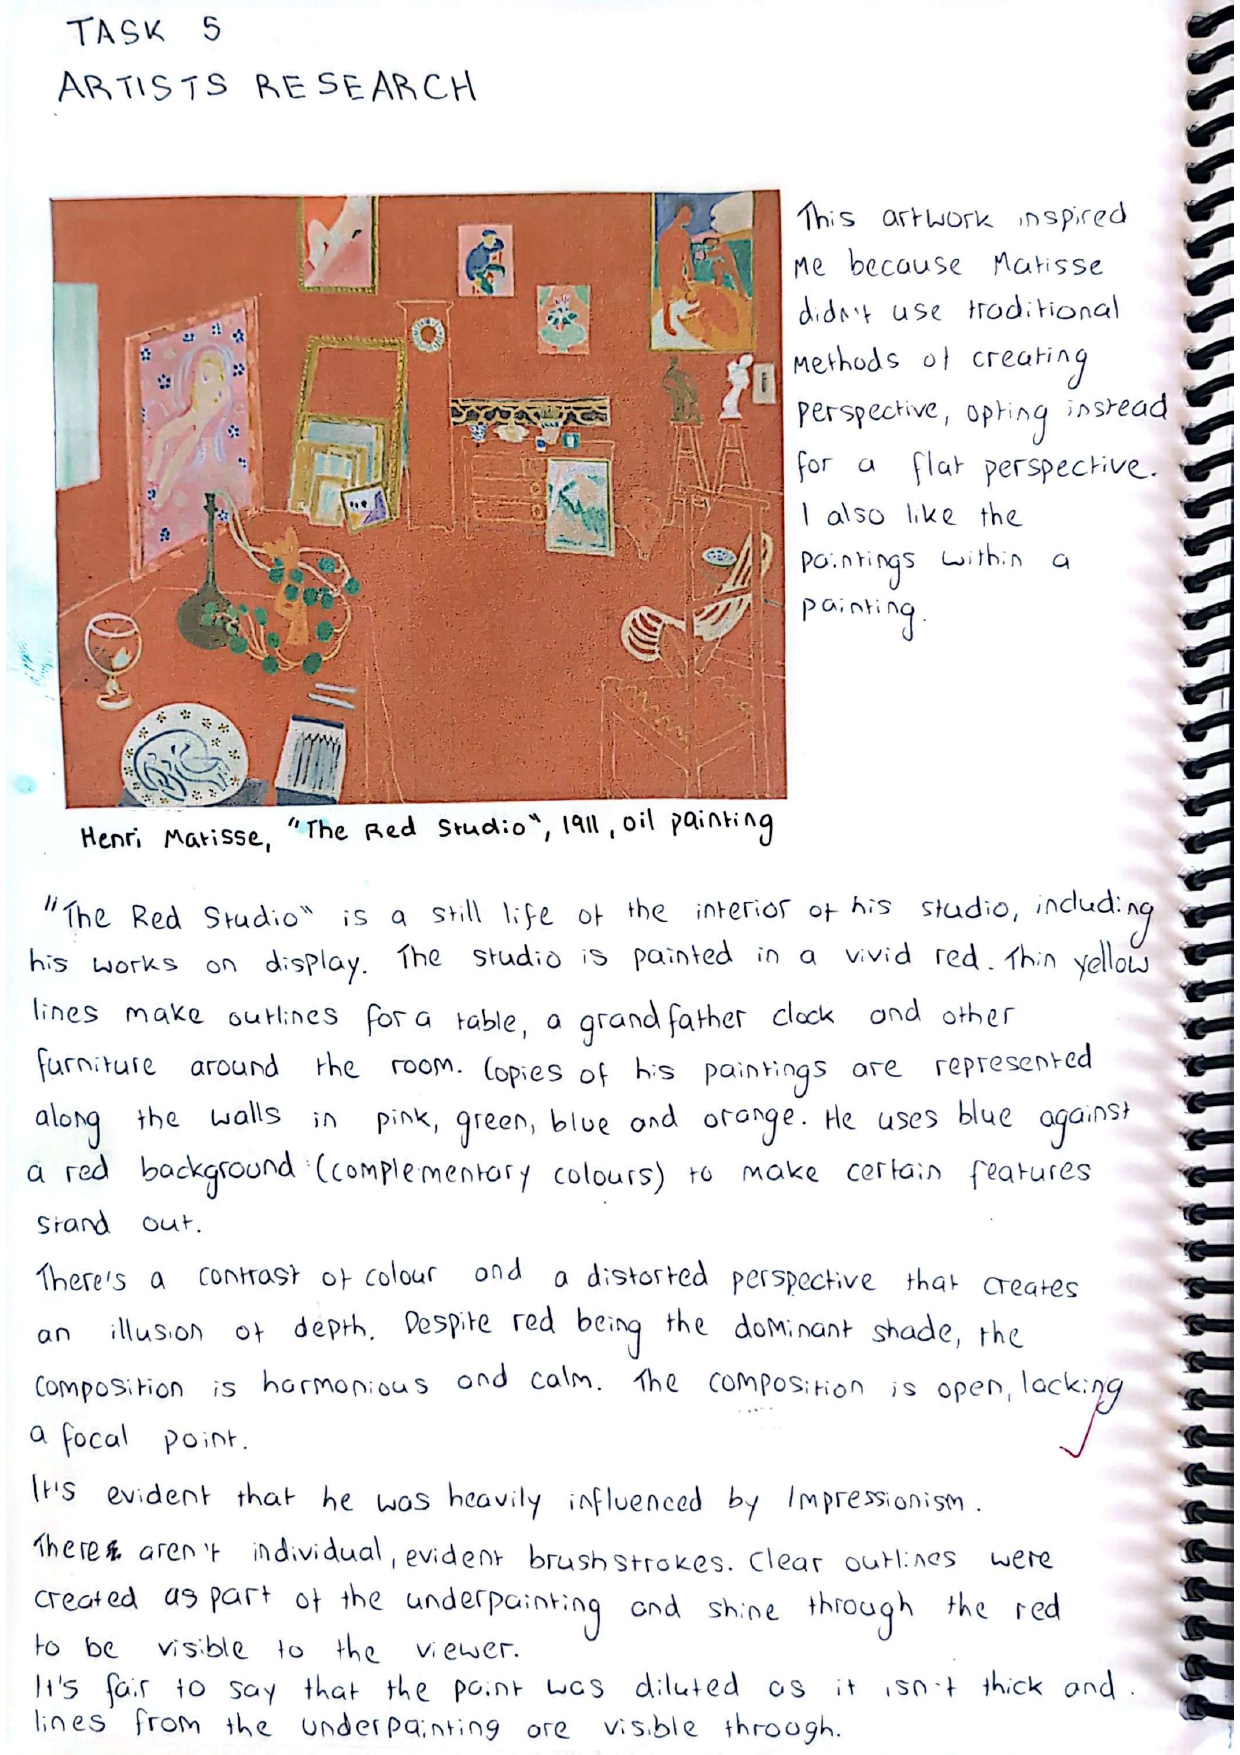 TASK 5
ARTISTS RESEARCH
This artwork inspired
me because Matisse
didn't use traditional
methods of creating
perspective, opting instead
for a flat perspective.
I also like the
paintings within a
painting.
Henri Matisse, "The Red Studio", 1911, oil painting
"The Red Studio" is a still life of the interior of his studio, including
his works on display. The studio is painted in a vivid red. Thin yellow
lines make outlines for a table, a grandfather clock and other
furniture around the room. Copies of his paintings are represented
along the walls in pink, green, blue and orange. He uses blue against
a red background (complementary colours) to make certain features
stand out.
There's a contrast of colour and a distorted perspective that creates
an illusion of depth. Despite red being the dominant shade, the
composition is harmonious and calm. The composition is open, lacking
a focal point.
It's evident that he was heavily influenced by Impressionism.
There aren't individual, evident brushstrokes. Clear outlines were
created as part of the underpainting and shine through the red
to be visible to the viewer.
It's fair to say that the paint was diluted as it isn't thick and
lines from the underpainting are visible through.